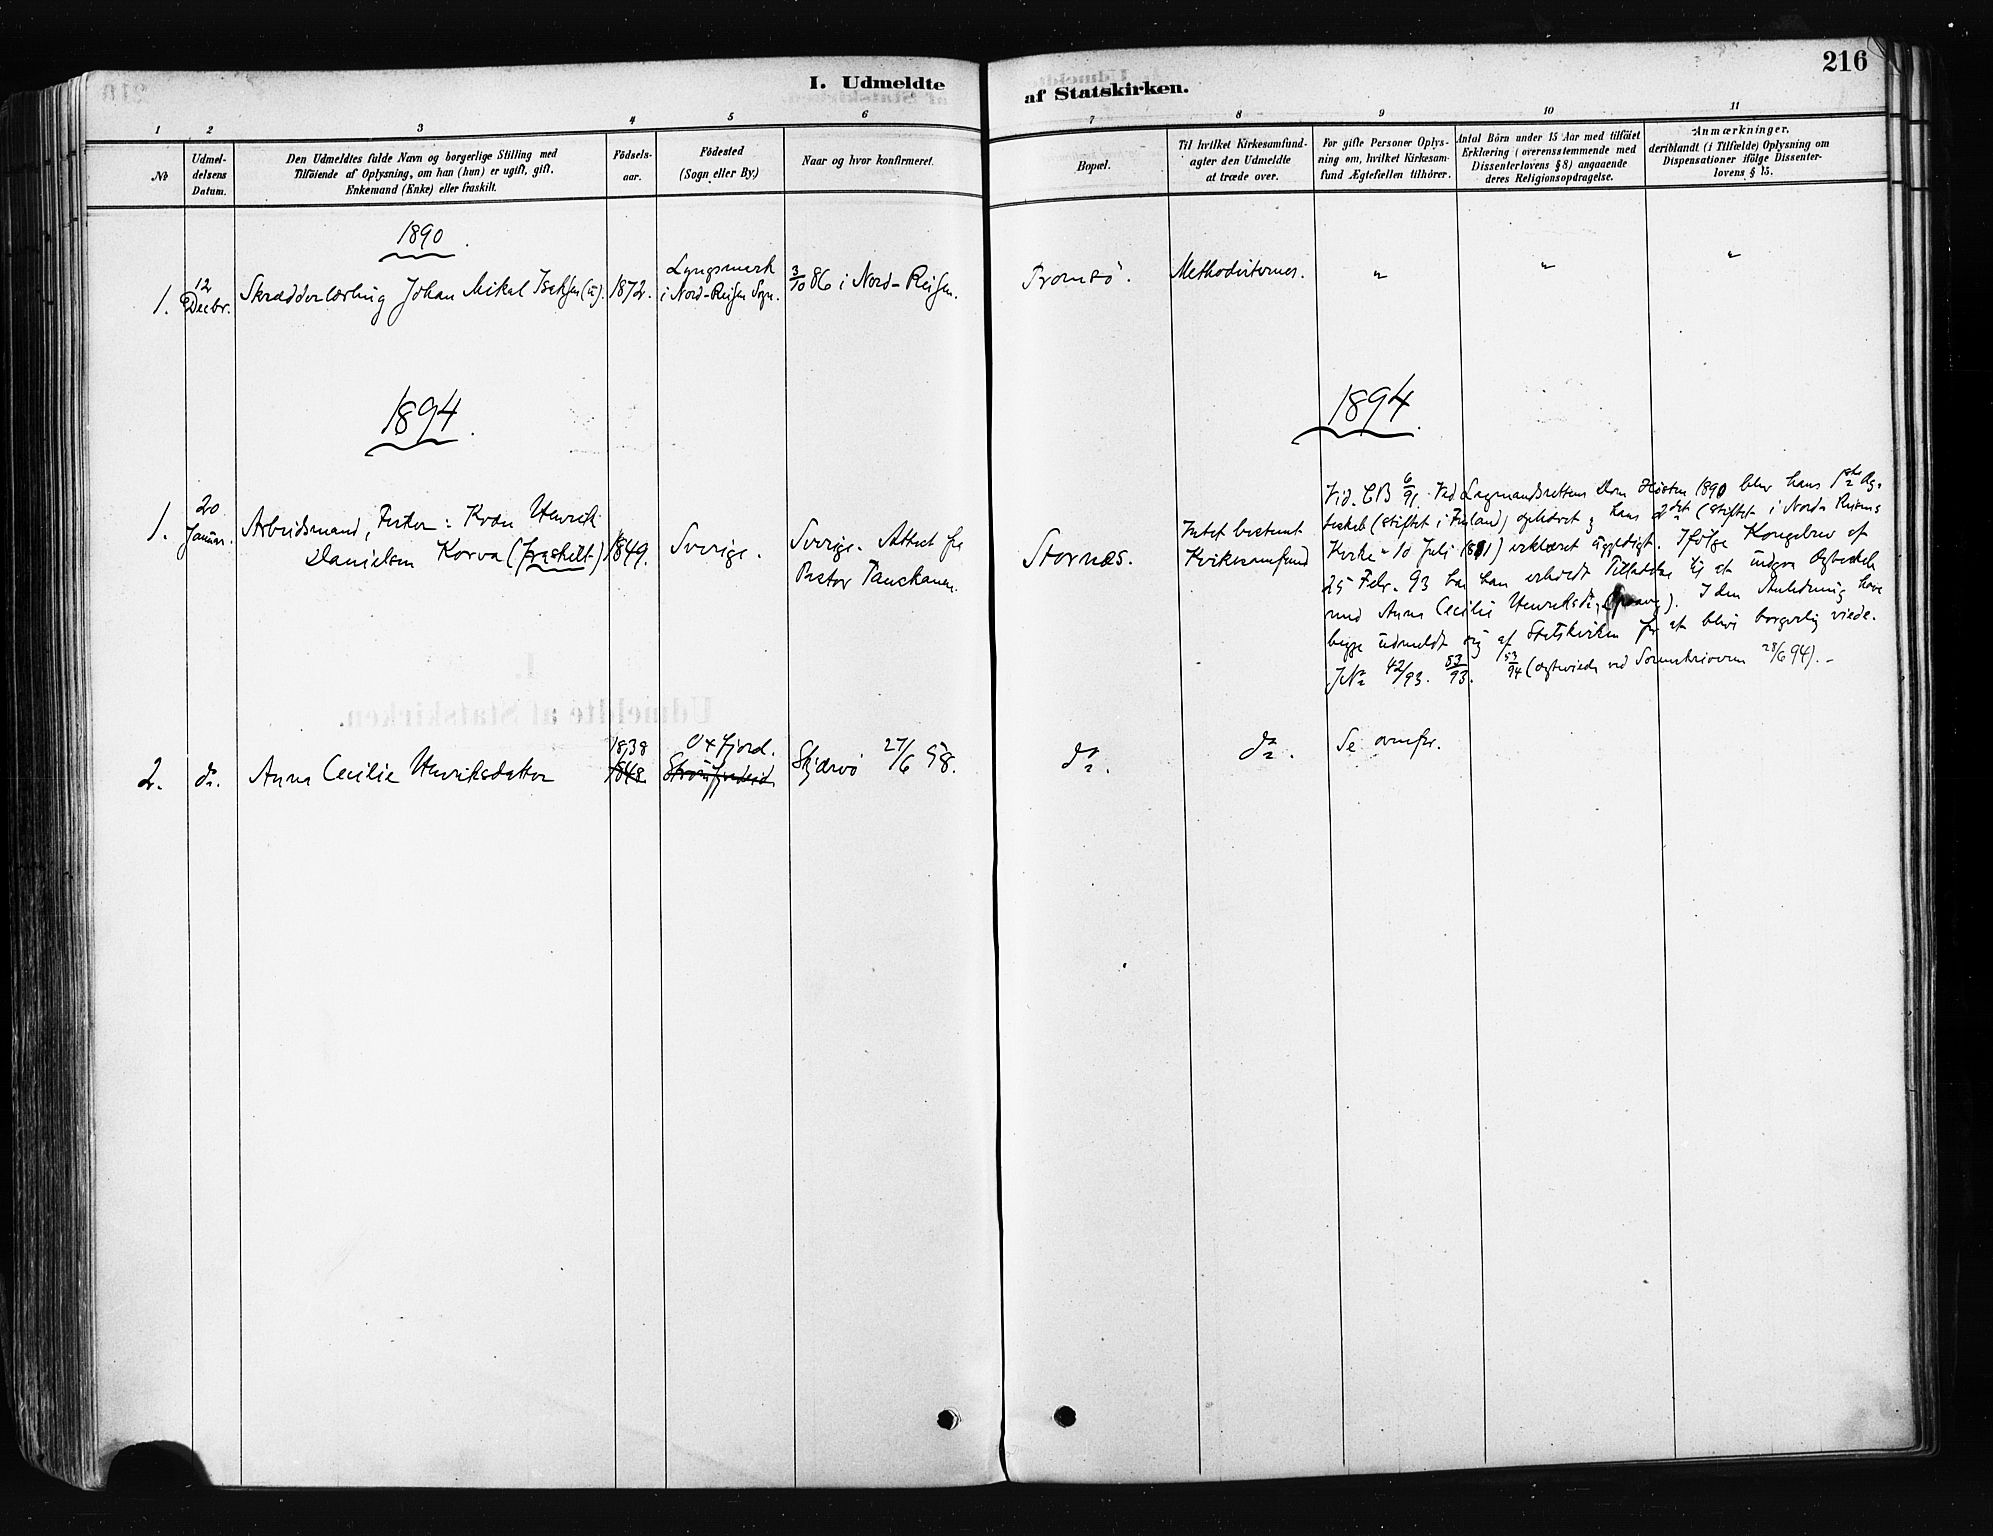 216
I. Udmeldte
af Statskirken.
1 2 3 4 5 6 7 8 9 10 11
No
Udmel-
delsens
Datum.
Den Udmeldtes fulde Navn og borgerlige Stilling med
Tilföiende af Oplysning, om han (hun) er ugift, gift,
Enkemand (Enke) eller fraskilt.
Födsels-
aar.
Födested
(Sogn eller By.)
Naar og hvor konfirmeret.
Bopæl.
Til hvilket Kirkesamfund
agter den Udmeldte
at træde over.
For gifte Personer Oplys-
ning om, hvilket Kirkesam-
fund Ægtefællen tilhörer.
Antal Börn under 15 Aar med tilföiet
Erklæring (overensstemmende med
Dissenterlovens § 8) angaaende
deres Religionsopdragelse.
Anmærkninger,
deriblandt (i Tilfælde) Oplysning om
Dispensationer ifölge Dissenter-
lovens § 15.
1890
1.
12
Decbr.
Skrædderlærling Johan Mikal Isaksen (u).
1872.
Lyngsmark
i Nord-Reisen Sogn.
3/10 86 i Nord-Reisen.
Tromsö.
Methodisternes.
"
"
"
1894
1894
1.
20
Januar.
Arbeidsmand, Fisker: Kvæn Henrik
Danielsen Korva (fraskilt)
1849.
Sverige.
Sverige. Attest fra
Pastor
Stornæs.
Intet bestemt
Kirkesamfund
Vid. CB 6/91. Ved Lagmandsrettens Dom Hösten 1890 blev hans 1ste Æg-
teskab (stiftet i Finland) oplöst og hans 2det (stiftet i Nord-Reisens
Kirke 10 Juli 1881) erklæret ugyldigt. Ifölge Kongebrev af
25 Febr. 93 har han erholdt Tilladelse til at indgaa Ægteskab
med Anna Cecilie Henriksdtr. I den Anledning have
begge udmeldt sig af Statskirken for at blive borgerlig viede.
JNo 42/93. 83/93. 53/94 (ægteviede ved Sorenskriveren 28/6 94). -
2.
do.
Anna Cecilie Henriksdatter
1838
1848
Oxfjord.
Skjærvö 27/6 58.
do.
do.
Se ovenfor.